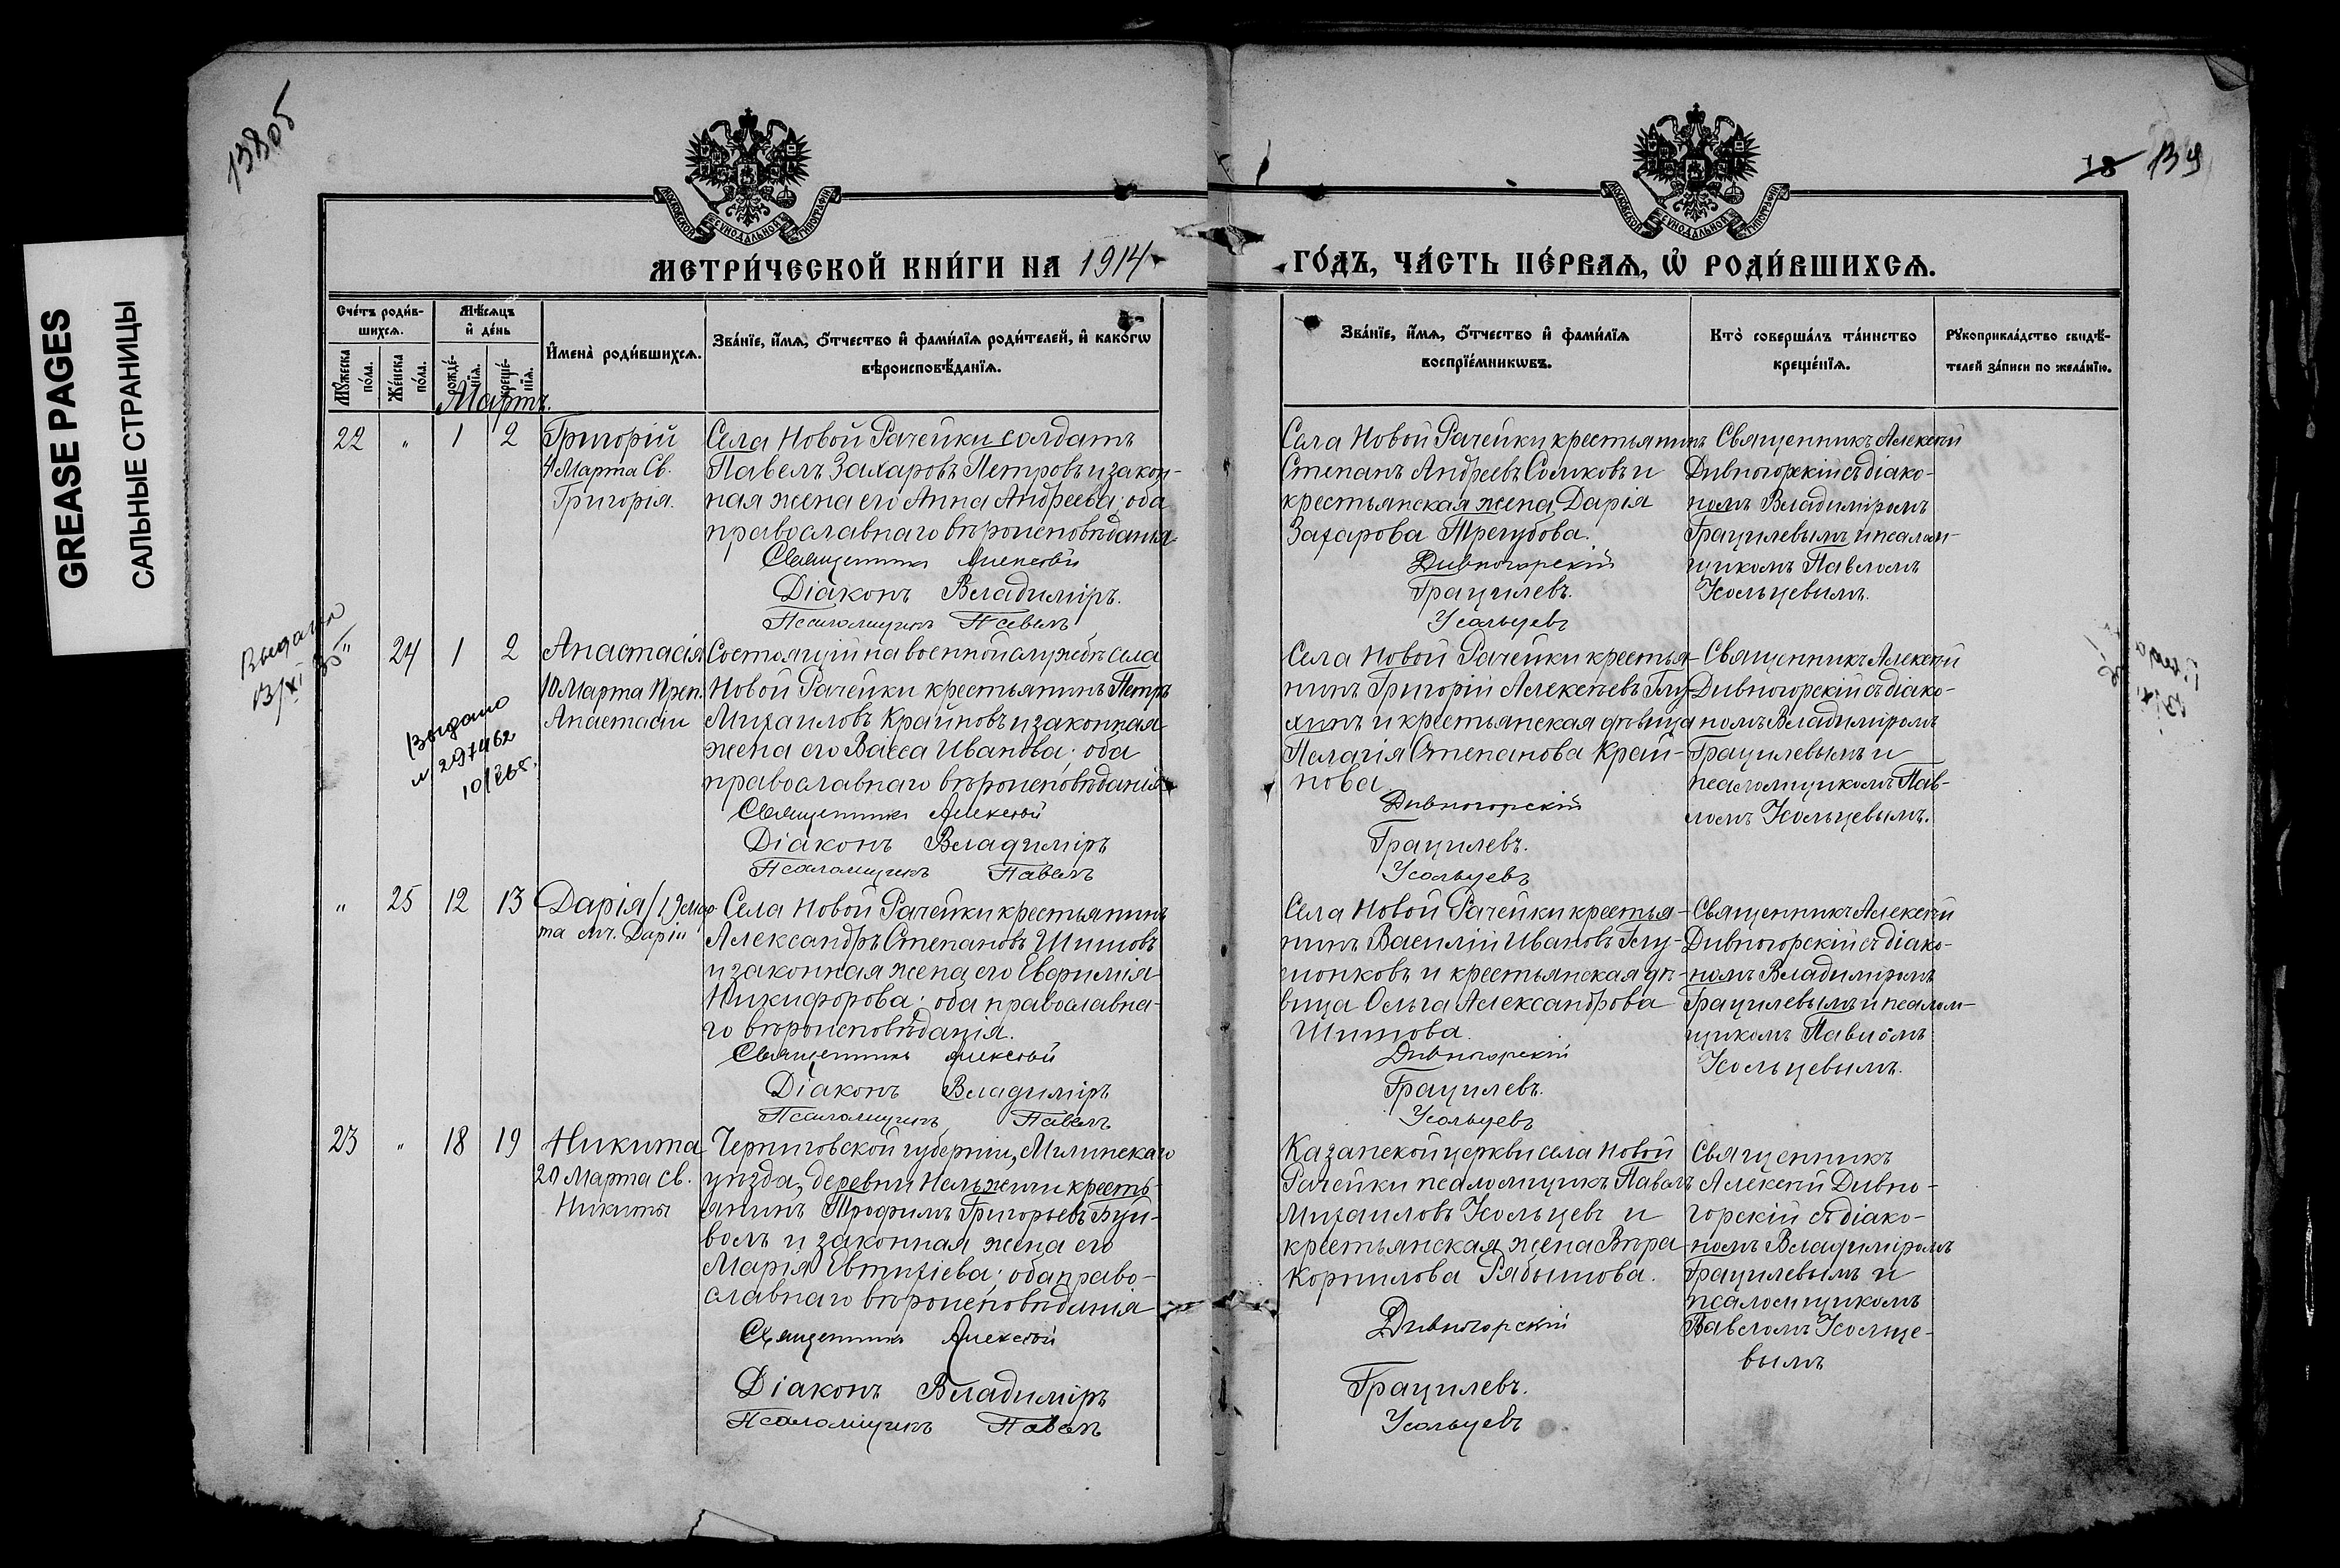 GREASE PAGES
САЛЬНЫЕ СТРАНИЦЫ
138об
18 139
МОСКОВСКОЙ СѴНОДАЛЬНОЙ ТИПОГРАФІИ
МОСКОВСКОЙ СѴНОДАЛЬНОЙ ТИПОГРАФІИ
МЕТРИ́ЧЕСКОЙ КНИ́ГИ НА 1914
ГО́ДЪ, ЧА́СТЬ ПЕ́РВАѦ, Ѡ҆ РОДИ́ВШИХСѦ.
Сче́тъ роди́в-
шихсѧ.
Мꙋ́жеска
по́ла.
Же́нска
по́ла.
Мѣ́сѧцъ
и҆ де́нь
рожде́-
нїѧ.
креще́-
нїѧ.
И҆мена̀ роди́вшихсѧ.
Зва́нїе, и҆́мѧ, ѻ҆́тчество и҆ фами́лїѧ роди́телей, и҆ како́гѡ
вѣроисповѣ́данїѧ.
Зва́нїе, и҆́мѧ, ѻ҆́тчество и҆ фами́лїѧ
воспрїе́мникѡвъ.
Кто̀ соверша́лъ та́инство
креще́нїѧ.
Рꙋкоприкла́дство свидѣ́-
телей за́писи по жела́нїю.
Мартъ.
22 " 1 2
Григорій
4 Марта Св.
Григорія.
Села Новой Рачейки солдатъ
Павелъ Захаровъ Петровъ и закон-
ная жена его Анна Андреева; оба
православнаго вѣроисповѣданія.
Священникъ Алексѣй
Діаконъ Владиміръ.
Псаломщикъ Павелъ
Села Новой Рачейки крестьянинъ
Степанъ Андреевъ Сомковъ и
крестьянская жена Дарія
Захарова Трегубова.
Дивногорскій
Грацилевъ.
Усольцевъ
Священникъ Алексѣй
Дивногорскій съ діако-
номъ Владиміромъ
Грацилевымъ и псалом-
щикомъ Павломъ
Усольцевымъ.
Выдана
13/XI 30
" 24 1 2
Анастасія
10 Марта Преп.
Анастасіи
Выдано
№ 297462
Состоящій на военной службѣ села
Новой Рачейки крестьянинъ Петръ
Михаиловъ Крайновъ и законная
жена его Васса Иванова; оба
православнаго вѣроисповѣданія
Священникъ Алексѣй
Діаконъ Владиміръ
Псаломщикъ Павелъ
Села Новой Рачейки крестья-
нинъ Григорій Алексѣевъ Глу-
хинъ и крестьянская дѣвица
Пелагія Степанова Край-
нова
Дивногорскій
Грацилевъ.
Усольцевъ
Священникъ Алексѣй
Дивногорскій съ діако-
номъ Владиміромъ
Грацилевымъ и
псаломщикомъ Пав-
ломъ Усольцевымъ.
" 25 12 13
Дарія /19 мар-
та мч. Даріи
Села Новой Рачейки крестьянинъ
Александръ Степановъ Шишовъ
и законная жена его Евфимія
Никифорова; оба православна-
го вѣроисповѣданія.
Священникъ Алексѣй
Діаконъ Владиміръ
Псаломщикъ Павелъ
Села Новой Рачейки крестья-
нинъ Василій Ивановъ Глу-
шонковъ и крестьянская дѣ-
вица Ольга Александрова
Шишова.
Дивногорскій
Грацилевъ.
Усольцевъ
Священникъ Алексѣй
Дивногорскій съ діако-
номъ Владиміромъ
Грацилевымъ и псалом-
щикомъ Павломъ
Усольцевымъ.
23 " 18 19
Никита
20 Марта Св.
Никиты
Черниговской губерніи, Мглинскаго
уѣзда, деревни Нельжичи кресть-
янинъ Трофимъ Григорьевъ Буй-
волъ и законная жена его
Марія Евтихіева; оба право-
славнаго вѣроисповѣданія
Священникъ Алексѣй
Діаконъ Владиміръ
Псаломщикъ Павелъ
Казанской церкви села Новой
Рачейки псаломщикъ Павелъ
Михаиловъ Усольцевъ и
крестьянская жена Вѣра
Корнилова Рябышова.
Дивногорскій
Грацилевъ.
Усольцевъ
Священникъ
Алексѣй Дивно-
горскій съ діако-
номъ Владиміромъ
Грацилевымъ и
псаломщикомъ
Павломъ Усольце-
вымъ